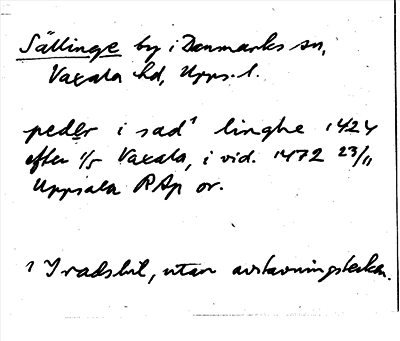 Sällinge by i Danmarks sn,
Vaxala hd, Upps. l.
peder i sad¹ linghe 1424
efter 1/5 Vaxala, i vid. 1472 23/11
Uppsala RAp or.
¹ I radslut, utan avstavningstecken.